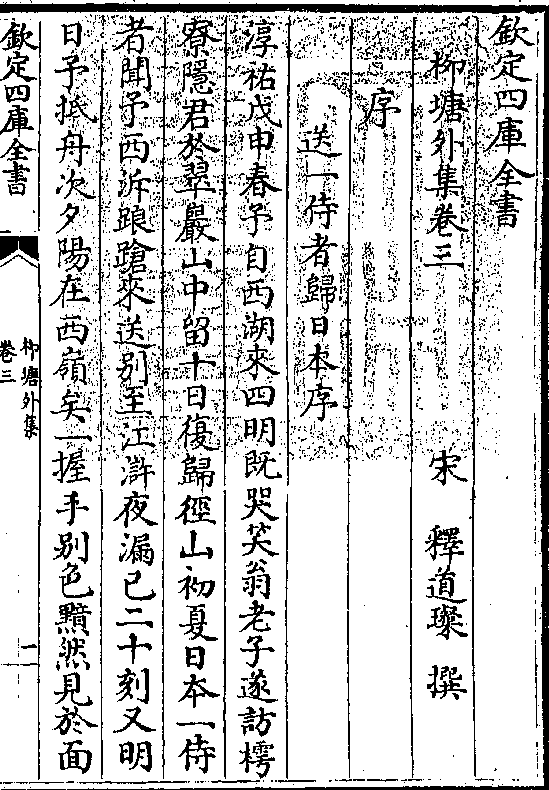 欽定四庫全書
柳塘外集卷三 宋 釋道璨 撰
序
送一侍者歸日本序
淳祐戊申春予自西湖來四明既哭笑翁老子遂訪樗
寮隱君於翠巖山中留十日復歸徑山初夏日本一侍
者聞予西泝踉蹌來送別至江滸夜漏已二十刻又明
日予抵舟次夕陽在西嶺矣一握手別色黯然見於面
欽定四庫全書
柳塘外集
卷三
一